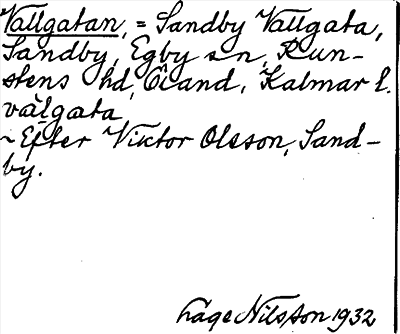 Vallgatan, = Sandby Vallgata,
Sandby, Egby sn, Run-
stens hd, Öland, Kalmar l.
valgata
~ Efter Viktor Olsson, Sand-
by.
Åage Nilsson 1932